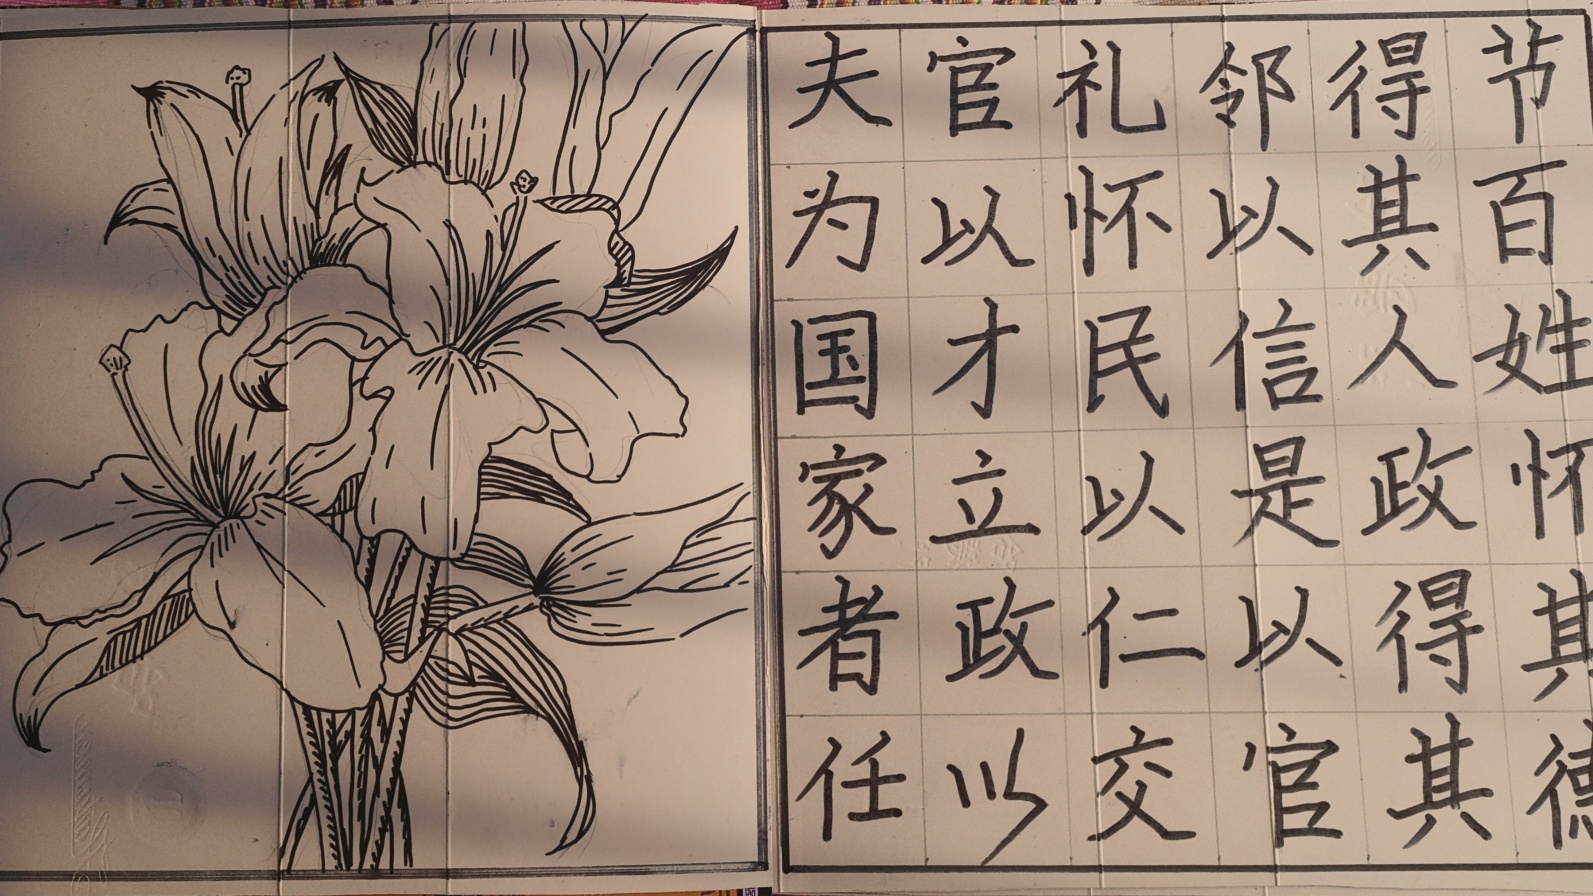 夫为国家者任
官以才立政以
礼怀民以仁交
邻以信是以官
得其人政得其
节百姓怀其德